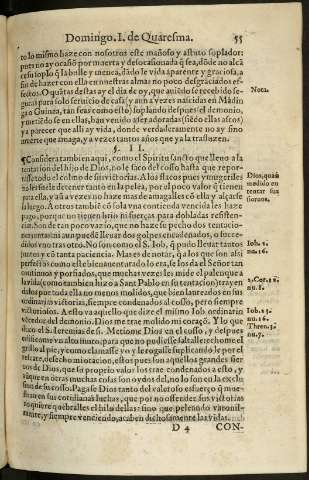 Domingo. I. de Quaresma. 55
to lo mismo haze con nosotros este mañoso y astuto soplador:
pues no ay ocasió por muerta y desocasionada q̃ sea, dõde no alcã
ce su soplo q̃ la bulle y menea, dãdo le vida aparente y graciosa, a
fin de hazer con ella en nuestras almas no poco desgraciados ef-
fectos. O quãtas destas ay el dia de oy, que aviẽdo se recebido se-
guras para solo servicio de casa (y aun a vezes nascidas en Mãdin
ga o Guinea, tan feas como esto) soplando despues el demonio,
y metiẽdo se en ellas, han venido a ser adoradas (siẽdo ellas ascos)
ya parecer que alli ay vida, donde verdaderamente no ay sino
muerte que amaga, y a vezes tantos años que ya la trasluzen.
Nota.
§. II.
¶Considera tambien aqui, como el Spiritu sancto que lleno a la
tentacion del hijo de Dios, no le saco del cosso hasta que repor-
tasse todo el cõbite de sus victorias. A los flacos pues y mugeriles
no les suele detener tanto en la pelea, por el poco valor q̃ tienen
para ella, y a las vezes no haze mas de amagalles cõ ella y alçarse
a luego. A otros tambiẽ cõ sola una contienda vencida les haze
pago, porque no tienen brio ni fuerças para dobladas resisten-
cias. Son de tan poco vazio, que no haze su pecho dos tentacio-
Dios, quan
medido en
tentar sus
siervos.
nes juntas, ni aun puedẽ llevar dos golpes encadenados, o succe-
didos uno tras otro. No son como el S. Iob, q̃ pudo llevar tantos
juntos y cõ tanta paciencia. Mas es de notar, q̃ a los que son assi
perfectos como este bienaventurado lo era, se los da el Señor tan
Iob. 1.
nu. 16.
continuos y porfiados, que muchas vezes les mide el palenque a
la vida (como tambien hizo a Sant Pablo en su tentaciõ) trayen
2. Cor. 12.
nu. 8.
dolos por toda ella no menos molidos, que bien laureados en sus
ordinarias victorias, siempre condenados al cosso, pero siempre
victoriosos. A esto va aquello que dize el mismo Iob ordinario
vẽcedor del demonio. Dios me trae molido mi coraçõ. Y lo que
Iob. 23.
nu. 16.
dixo el S. Ieremias de si. Metiome Dios en el cosso, y despues
Thren. 3.
nu. 7.
edifico me un alto muro, para que no pudiesse saltalle echo me el
grillo al pie, y como clamasse yo y le rogasse suplicandole por el
rescate, desecho mi oraciõ, esto es pues son aquellos grandes sier-
vos de Dios, que su proprio valor los trae condenados a esto, y
ya que en otras muchas cosas son oydos del, no lo son en la exclu
sion de su cosso. Pagase Dios tanto del valeroso esfuerço q̃ mue-
stran en sus cotidianas luchas, que por no offender sus victorias
no quiere q̃brarles el hilo dellas: sino que peleando varonil-
mente, y siempre venciendo, acaben dichosamente las vidas.
D 4 CON-